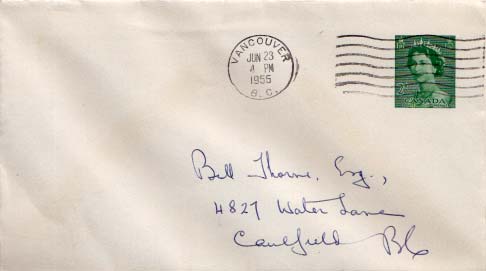 VANCOUVER
JUN 23
4 PM
1955
B.C.
2
CANADA
Bill Thorne, Esq.,
4827 Water Lane
Caulfield BC